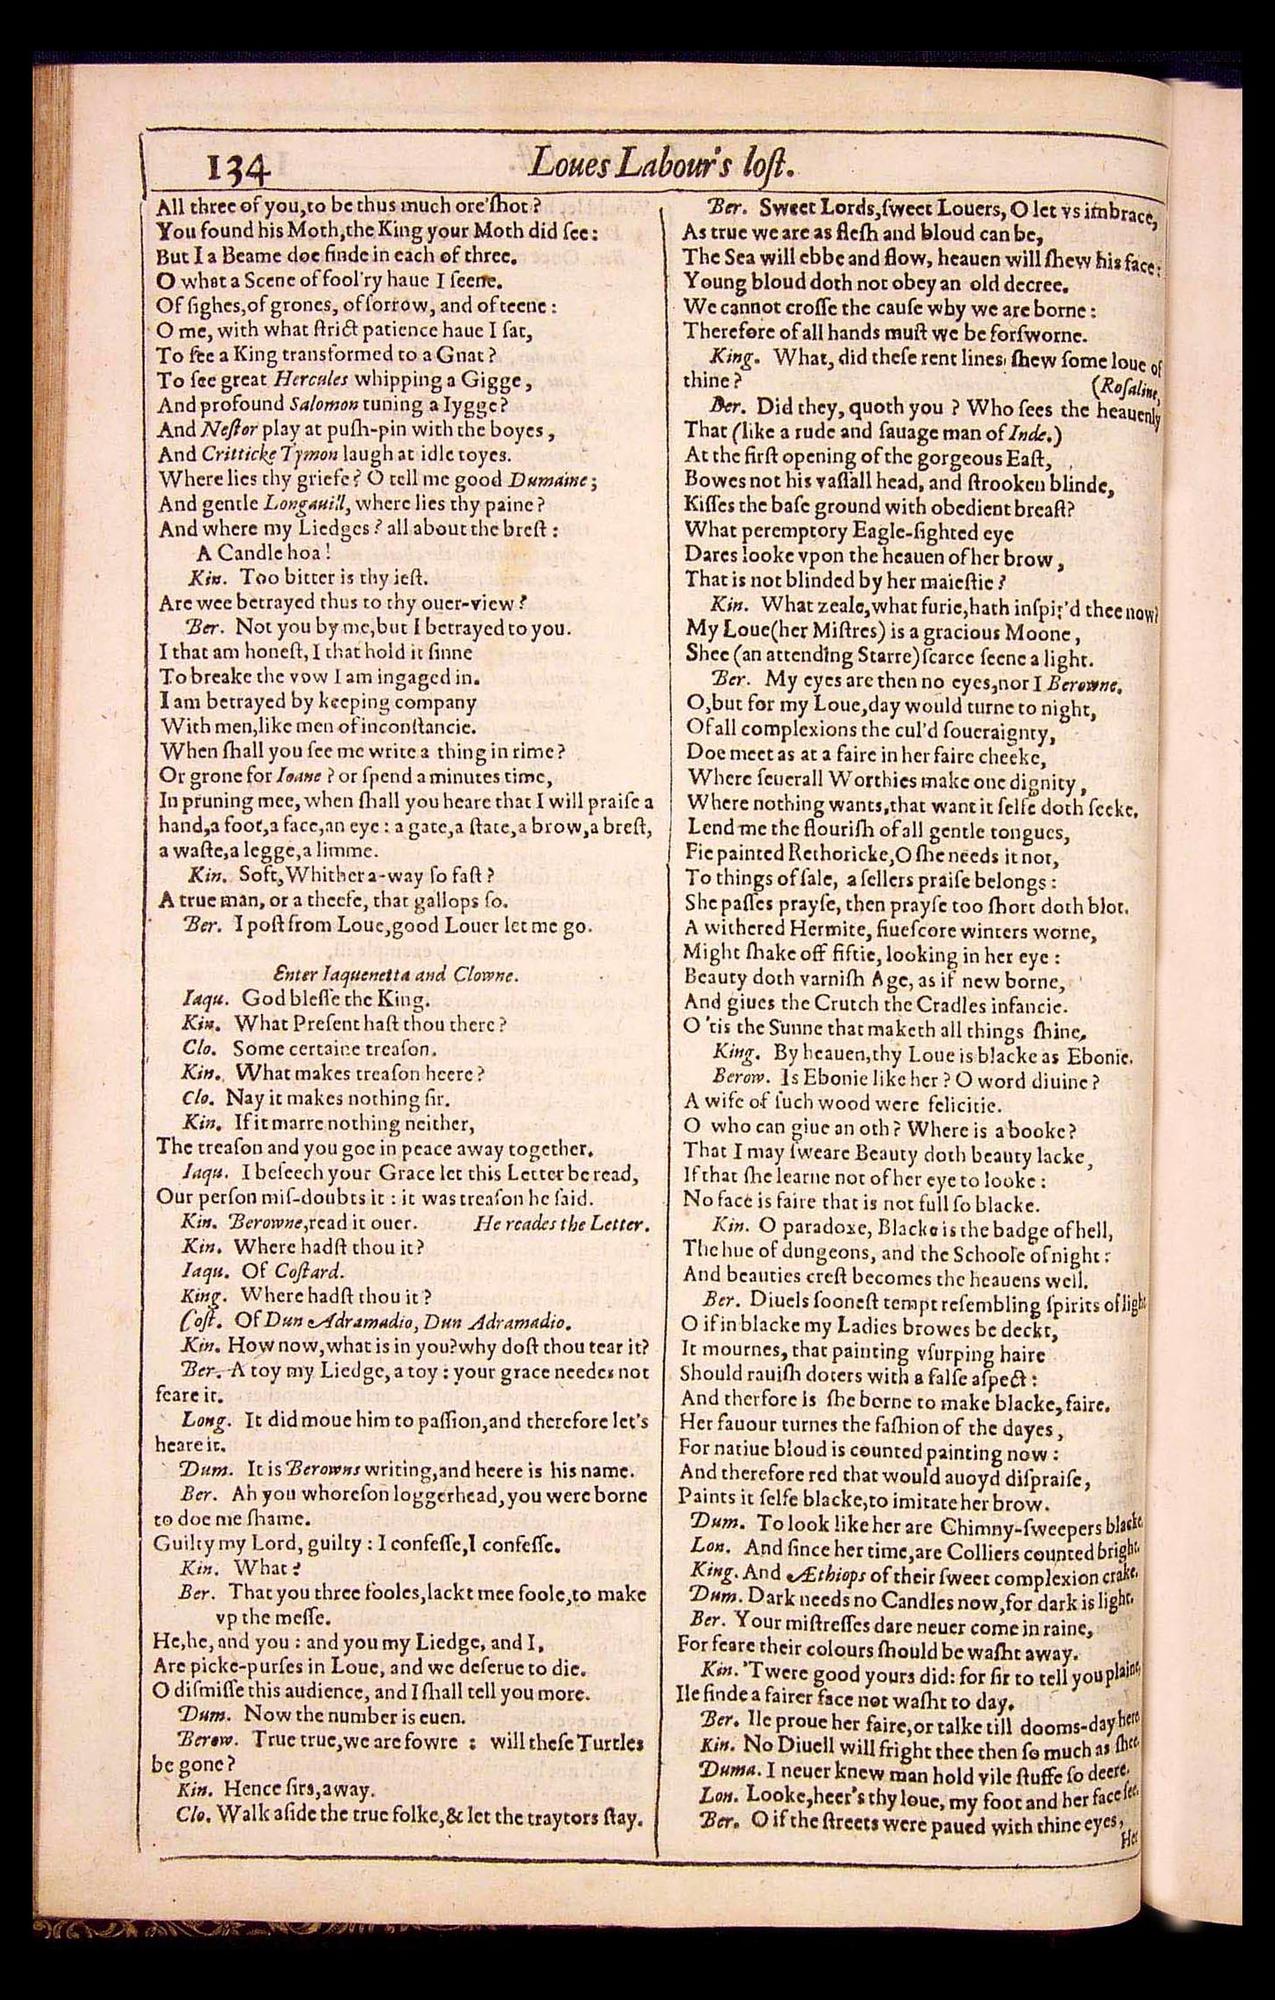 134
Loues Labour's lost.
All three of you, to be thus much ore'ſhot?
You found his Moth, the King your Moth did ſee:
But I a Beame doe finde in each of three.
O what a Scene of fool'ry haue I ſeene.
Of ſighes, of grones, of ſorrow, and of teene:
O me, with what ſtrict patience haue I ſat,
To ſee a King transformed to a Gnat?
To ſee great Hercules whipping a Gigge,
And profound Salomon tuning a Iygge?
And Neſtor play at puſh-pin with the boyes,
And Critticke Tymon laugh at idle toyes.
Where lies thy griefe? O tell me good Dumaine;
And gentle Longauill, where lies thy paine?
And where my Liedges? all about the breſt:
A Candle hoa!
Kin. Too bitter is thy ieſt.
Are wee betrayed thus to thy ouer-view?
Ber. Not you by me, but I betrayed to you.
I that am honeſt, I that hold it ſinne
To breake the vow I am ingaged in.
I am betrayed by keeping company
With men, like men of inconſtancie.
When ſhall you ſee me write a thing in rime?
Or grone for Ioane? or ſpend a minutes time,
In pruning mee, when ſhall you heare that I will praiſe a
hand, a foot, a face, an eye: a gate, a ſtate, a brow, a breſt,
a waſte, a legge, a limme.
Kin. Soft, Whither a-way ſo faſt?
A true man, or a theefe, that gallops ſo.
Ber. I poſt from Loue, good Louer let me go.
Enter Iaquenetta and Clowne.
Iaqu. God bleſſe the King.
Kin. What Preſent haſt thou there?
Clo. Some certaine treaſon.
Kin. What makes treaſon heere?
Clo. Nay it makes nothing ſir.
Kin. If it marre nothing neither,
The treaſon and you goe in peace away together.
Iaqu. I beſeech your Grace let this Letter be read,
Our perſon miſ-doubts it: it was treaſon he ſaid.
Kin. Berowne, read it ouer. He reades the Letter.
Kin. Where hadſt thou it?
Iaqu. Of Coſtard.
King. Where hadſt thou it?
Coſt. Of Dun Adramadio, Dun Adramadio.
Kin. How now, what is in you? why doſt thou tear it?
Ber. A toy my Liedge, a toy: your grace needes not
feare it.
Long. It did moue him to paſſion, and therefore let's
heare it.
Dum. It is Berowns writing, and heere is his name.
Ber. Ah you whoreſon loggerhead, you were borne
to doe me ſhame.
Guilty my Lord, guilty: I confeſſe, I confeſſe.
Kin. What?
Ber. That you three fooles, lackt mee foole, to make
vp the meſſe.
He, he, and you: and you my Liedge, and I,
Are picke-purſes in Loue, and we deſerue to die.
O diſmiſſe this audience, and I ſhall tell you more.
Dum. Now the number is euen.
Berow. True true, we are fowre: will theſe Turtles
be gone?
Kin. Hence ſirs, away.
Clo. Walk aſide the true folke, & let the traytors ſtay.
Ber. Sweet Lords, ſweet Louers, O let vs imbrace,
As true we are as fleſh and bloud can be,
The Sea will ebbe and flow, heauen will ſhew his face:
Young bloud doth not obey an old decree.
We cannot croſſe the cauſe why we are borne:
Therefore of all hands muſt we be forſworne.
King. What, did theſe rent lines ſhew ſome loue of
thine? (Roſaline,
Ber. Did they, quoth you? Who ſees the heauenly
That (like a rude and ſauage man of Inde.)
At the firſt opening of the gorgeous Eaſt,
Bowes not his vaſſall head, and ſtrooken blinde,
Kiſſes the baſe ground with obedient breaſt?
What peremptory Eagle-ſighted eye
Dares looke vpon the heauen of her brow,
That is not blinded by her maieſtie?
Kin. What zeale, what furie, hath inſpir'd thee now?
My Loue (her Miſtres) is a gracious Moone,
Shee (an attending Starre) ſcarce ſeene a light.
Ber. My eyes are then no eyes, nor I Berowne.
O, but for my Loue, day would turne to night,
Of all complexions the cul'd ſoueraignty,
Doe meet as at a faire in her faire cheeke,
Where ſeuerall Worthies make one dignity,
Where nothing wants, that want it ſelfe doth ſeeke.
Lend me the flouriſh of all gentle tongues,
Fie painted Rethoricke, O ſhe needs it not,
To things of ſale, a ſellers praiſe belongs:
She paſſes prayſe, then prayſe too ſhort doth blot.
A withered Hermite, fiueſcore winters worne,
Might ſhake off fiftie, looking in her eye:
Beauty doth varniſh Age, as if new borne,
And giues the Crutch the Cradles infancie.
O 'tis the Sunne that maketh all things ſhine.
King. By heauen, thy Loue is blacke as Ebonie.
Berow. Is Ebonie like her? O word diuine?
A wife of ſuch wood were felicitie.
O who can giue an oth? Where is a booke?
That I may ſweare Beauty doth beauty lacke,
If that ſhe learne not of her eye to looke:
No face is faire that is not full ſo blacke.
Kin. O paradoxe, Blacke is the badge of hell,
The hue of dungeons, and the Schoole of night:
And beauties creſt becomes the heauens well.
Ber. Diuels ſooneſt tempt reſembling ſpirits of light
O if in blacke my Ladies browes be deckt,
It mournes, that painting vſurping haire
Should rauiſh doters with a falſe aſpect:
And therfore is ſhe borne to make blacke, faire.
Her fauour turnes the faſhion of the dayes,
For natiue bloud is counted painting now:
And therefore red that would auoyd diſpraiſe,
Paints it ſelfe blacke, to imitate her brow.
Dum. To look like her are Chimny-ſweepers blacke.
Lon. And ſince her time, are Colliers counted bright.
King. And Æthiops of their ſweet complexion crake.
Dum. Dark needs no Candles now, for dark is light.
Ber. Your miſtreſſes dare neuer come in raine,
For feare their colours ſhould be waſht away.
Kin. 'Twere good yours did: for ſir to tell you plaine,
Ile finde a fairer face not waſht to day.
Ber. Ile proue her faire, or talke till dooms-day here.
Kin. No Diuell will fright thee then ſo much as ſhee.
Duma. I neuer knew man hold vile ſtuffe ſo deere.
Lon. Looke, heer's thy loue, my foot and her face ſee.
Ber. O if the ſtreets were paued with thine eyes,
Her